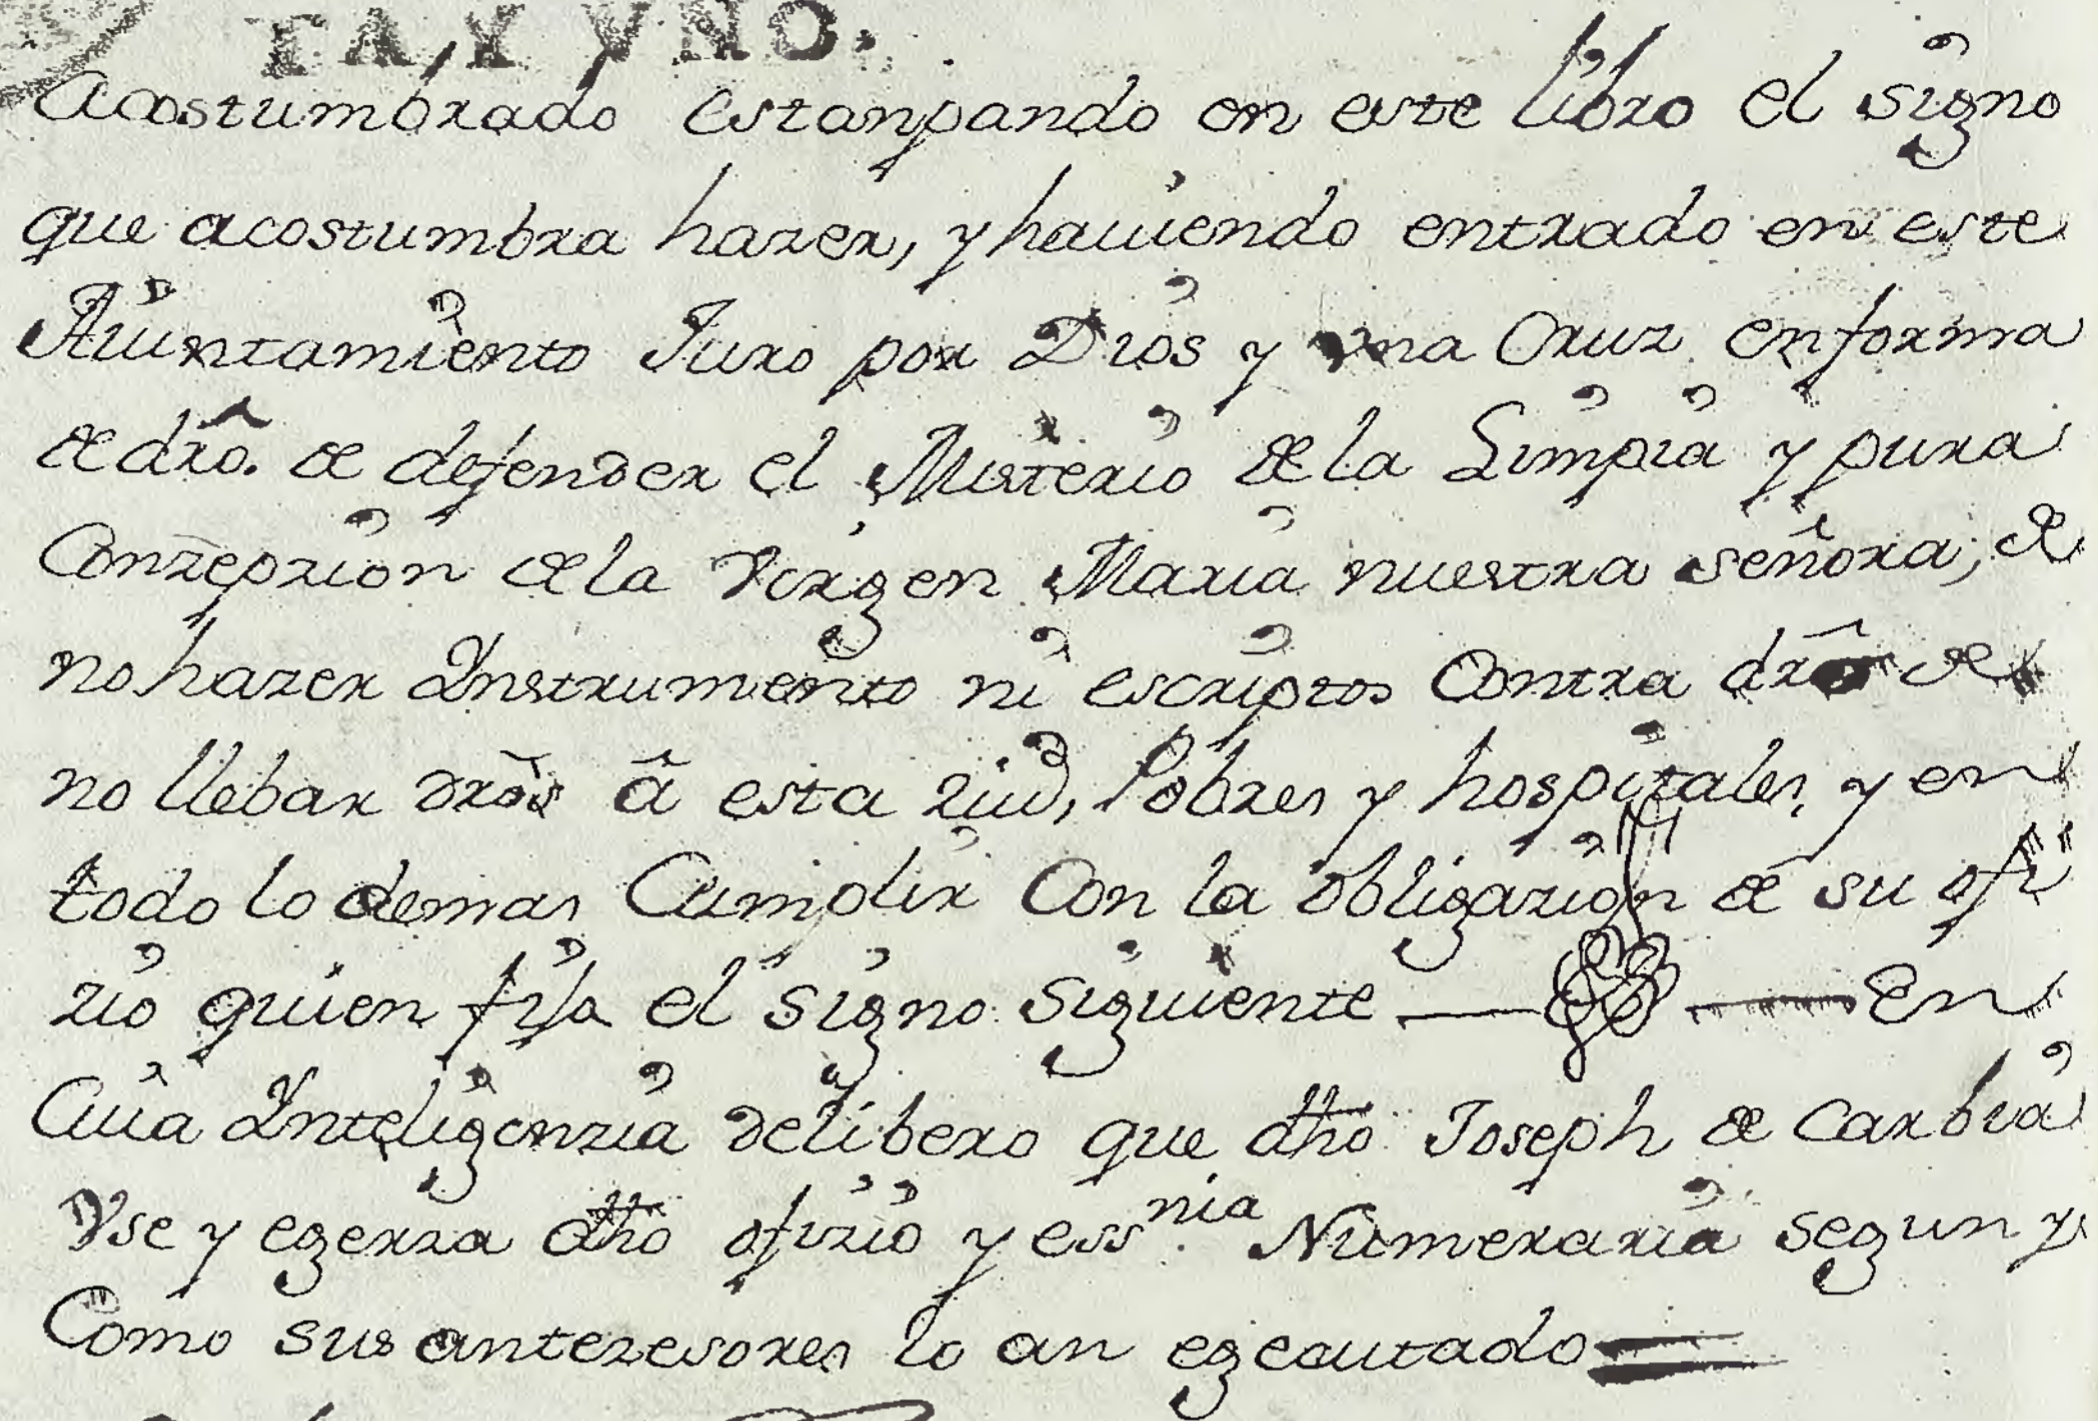 TA, Y VNO.
Acostumbrado estanpando en este libro el signo
que acostumbra hazer, y hauiendo entrado en este
Aiuntamiento Juro por Dios y vna Cruz en forma
de dro. de defender el Misterio de la Limpia y pura
Conzepzion de la Virgen Maria nuestra señora; de
no hazer Ynstrumento ni escriptos Contra dro de
no llebar dros â esta ziud, Pobres y hospitales, y en
todo lo demas Cumplir Con la obligazion de su ofi
zio quien fija el signo siguiente — — En
Cuia Ynteligenzia delibero que dho Joseph de Carbia
Vse y egerza dho ofizio y essnia. Numeraria segun y
Como sus antezesores lo an egecutado =